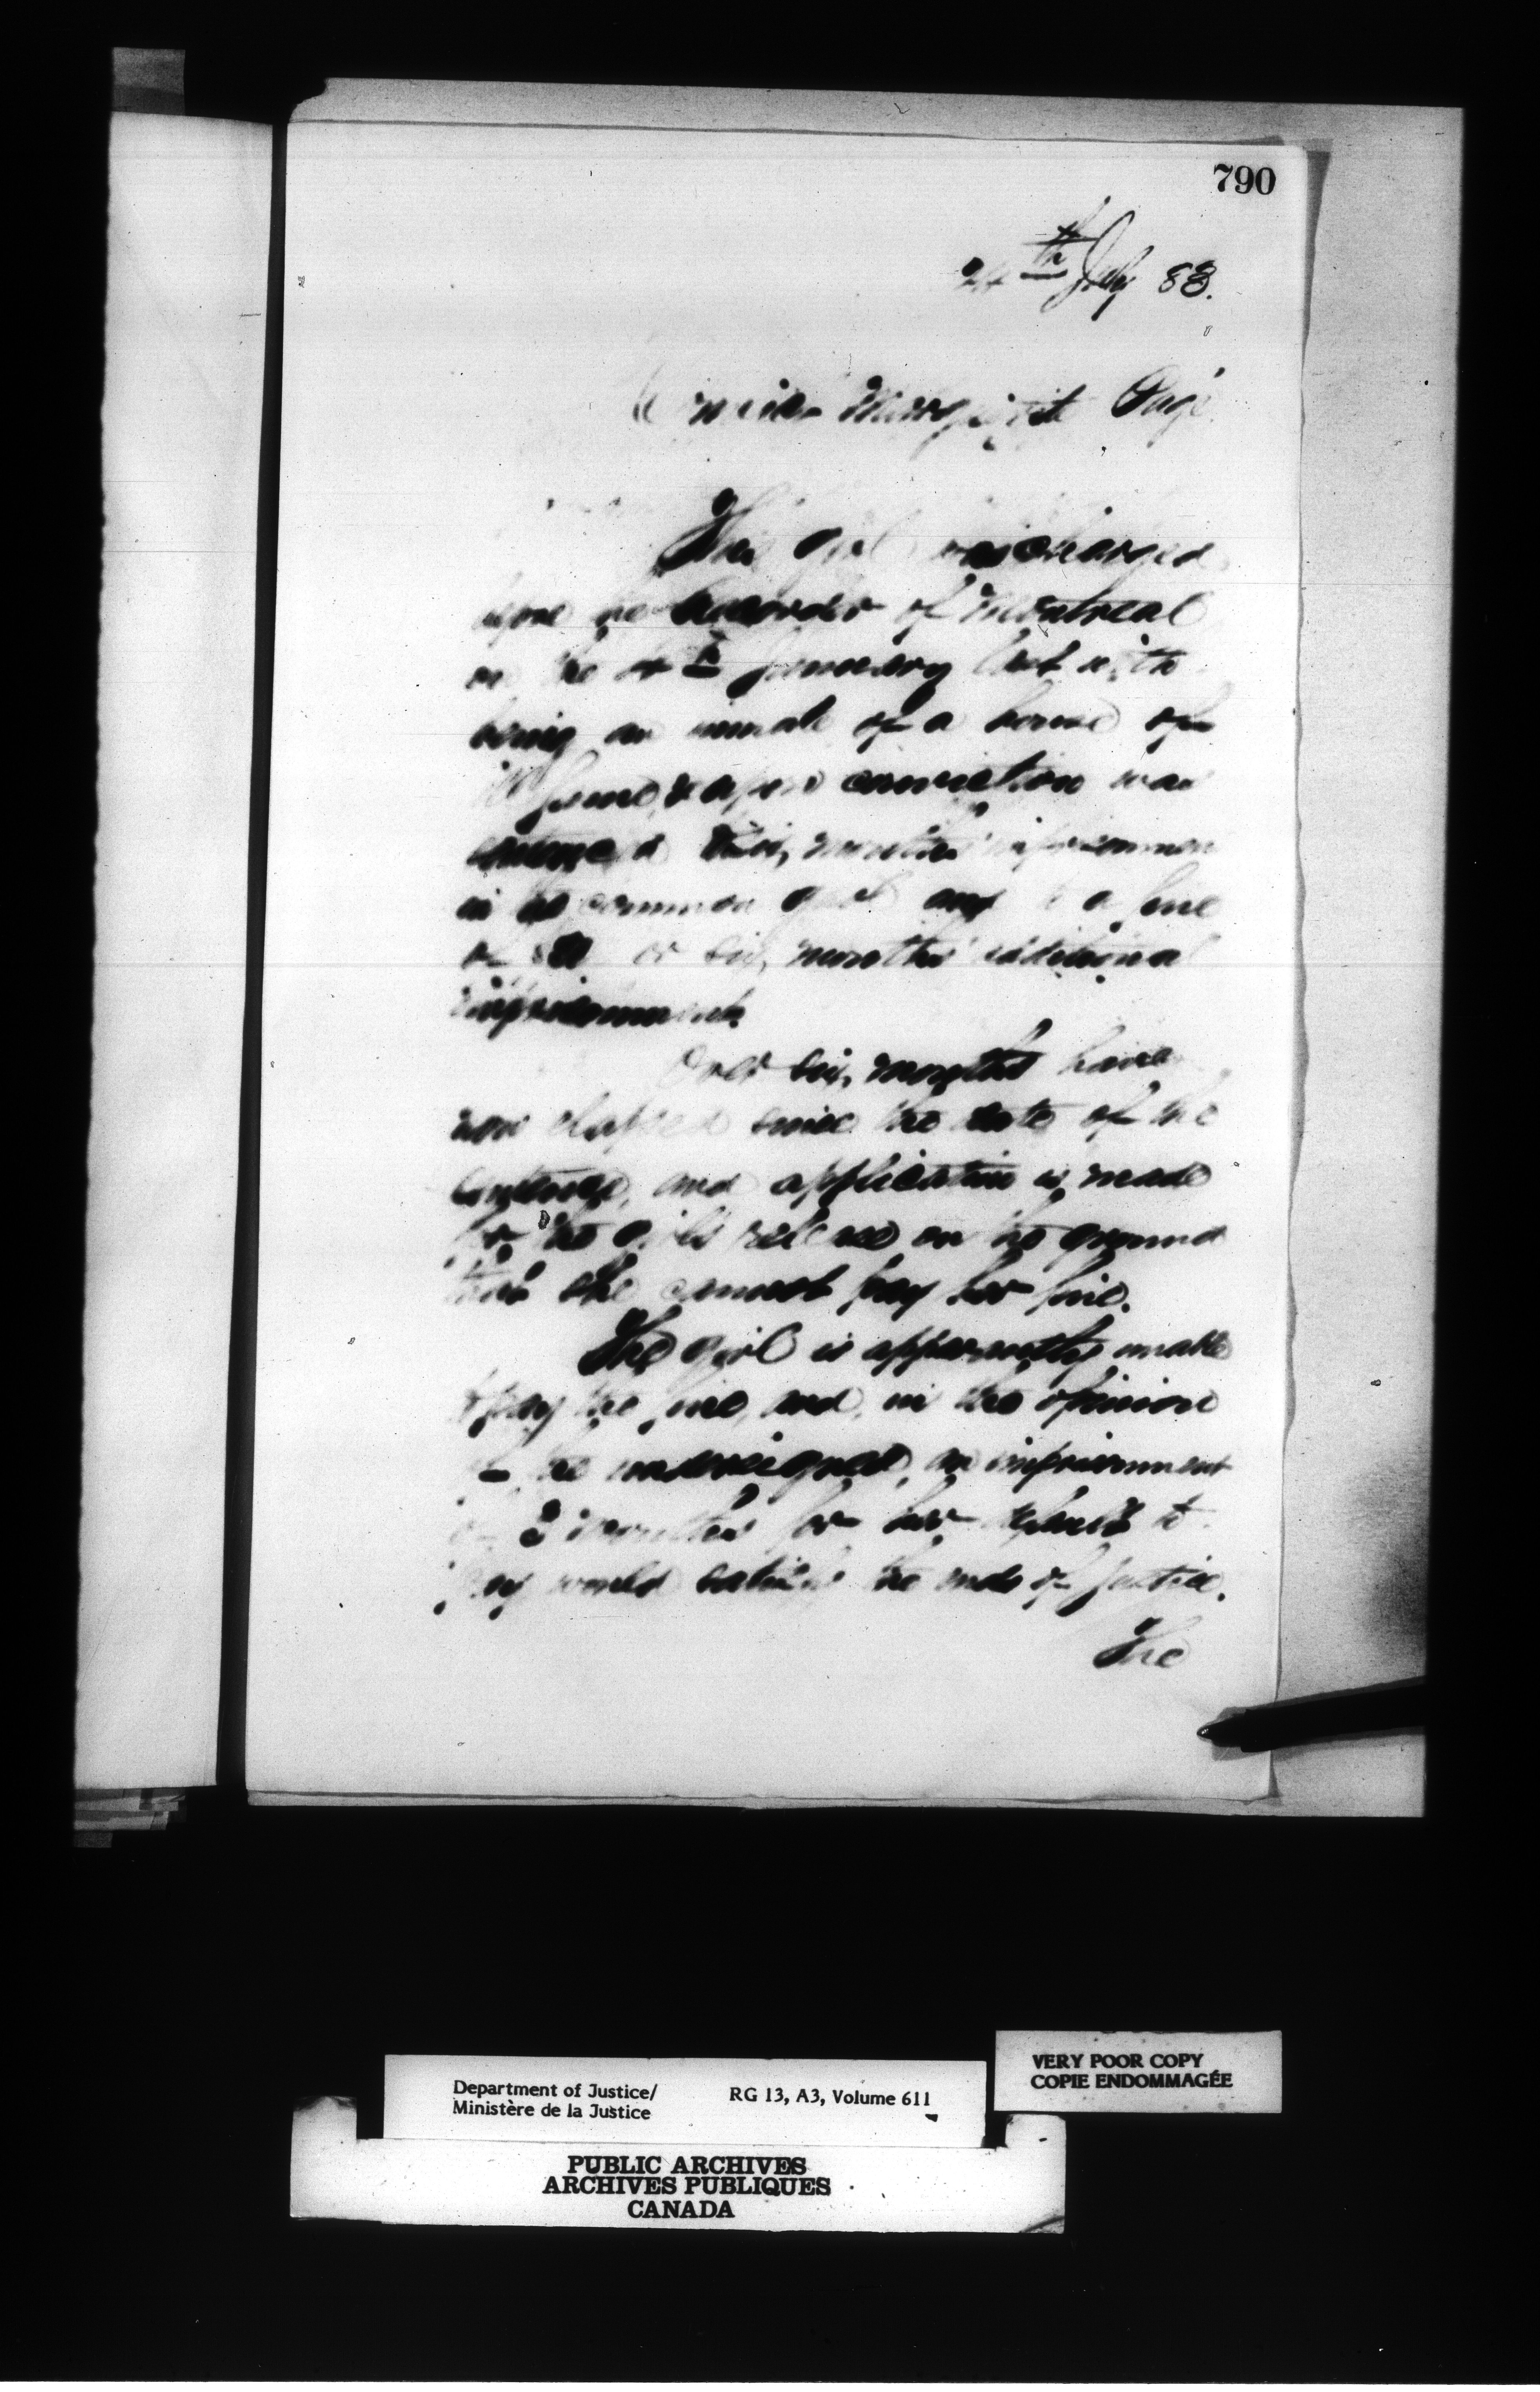 790
24th July 83.
Marguerite Pagé
This girl was charged
before the Recorder of Montreal
on the 4th January last with
being an inmate of a house of
ill fame, & upon conviction was
sentenced six, months imprisonmen
in the common gaol and to a fine
of or six, months' additional
imprisonment.
Over six, months have
now elapsed since the date of the
sentence, and application is made
for the girl's release on the ground
that she cannot pay her fine.
The girl is apparently unable
to pay the fine, and, in the opinion
of the undersigned, an imprisonment
of months for her default to
pay would satisfy the ends of justice.
The
VERY POOR COPY
COPIE ENDOMMAGÉE
Department of Justice/ RG 13, A3, Volume 611
Ministère de la Justice
PUBLIC ARCHIVES
ARCHIVES PUBLIQUES
CANADA